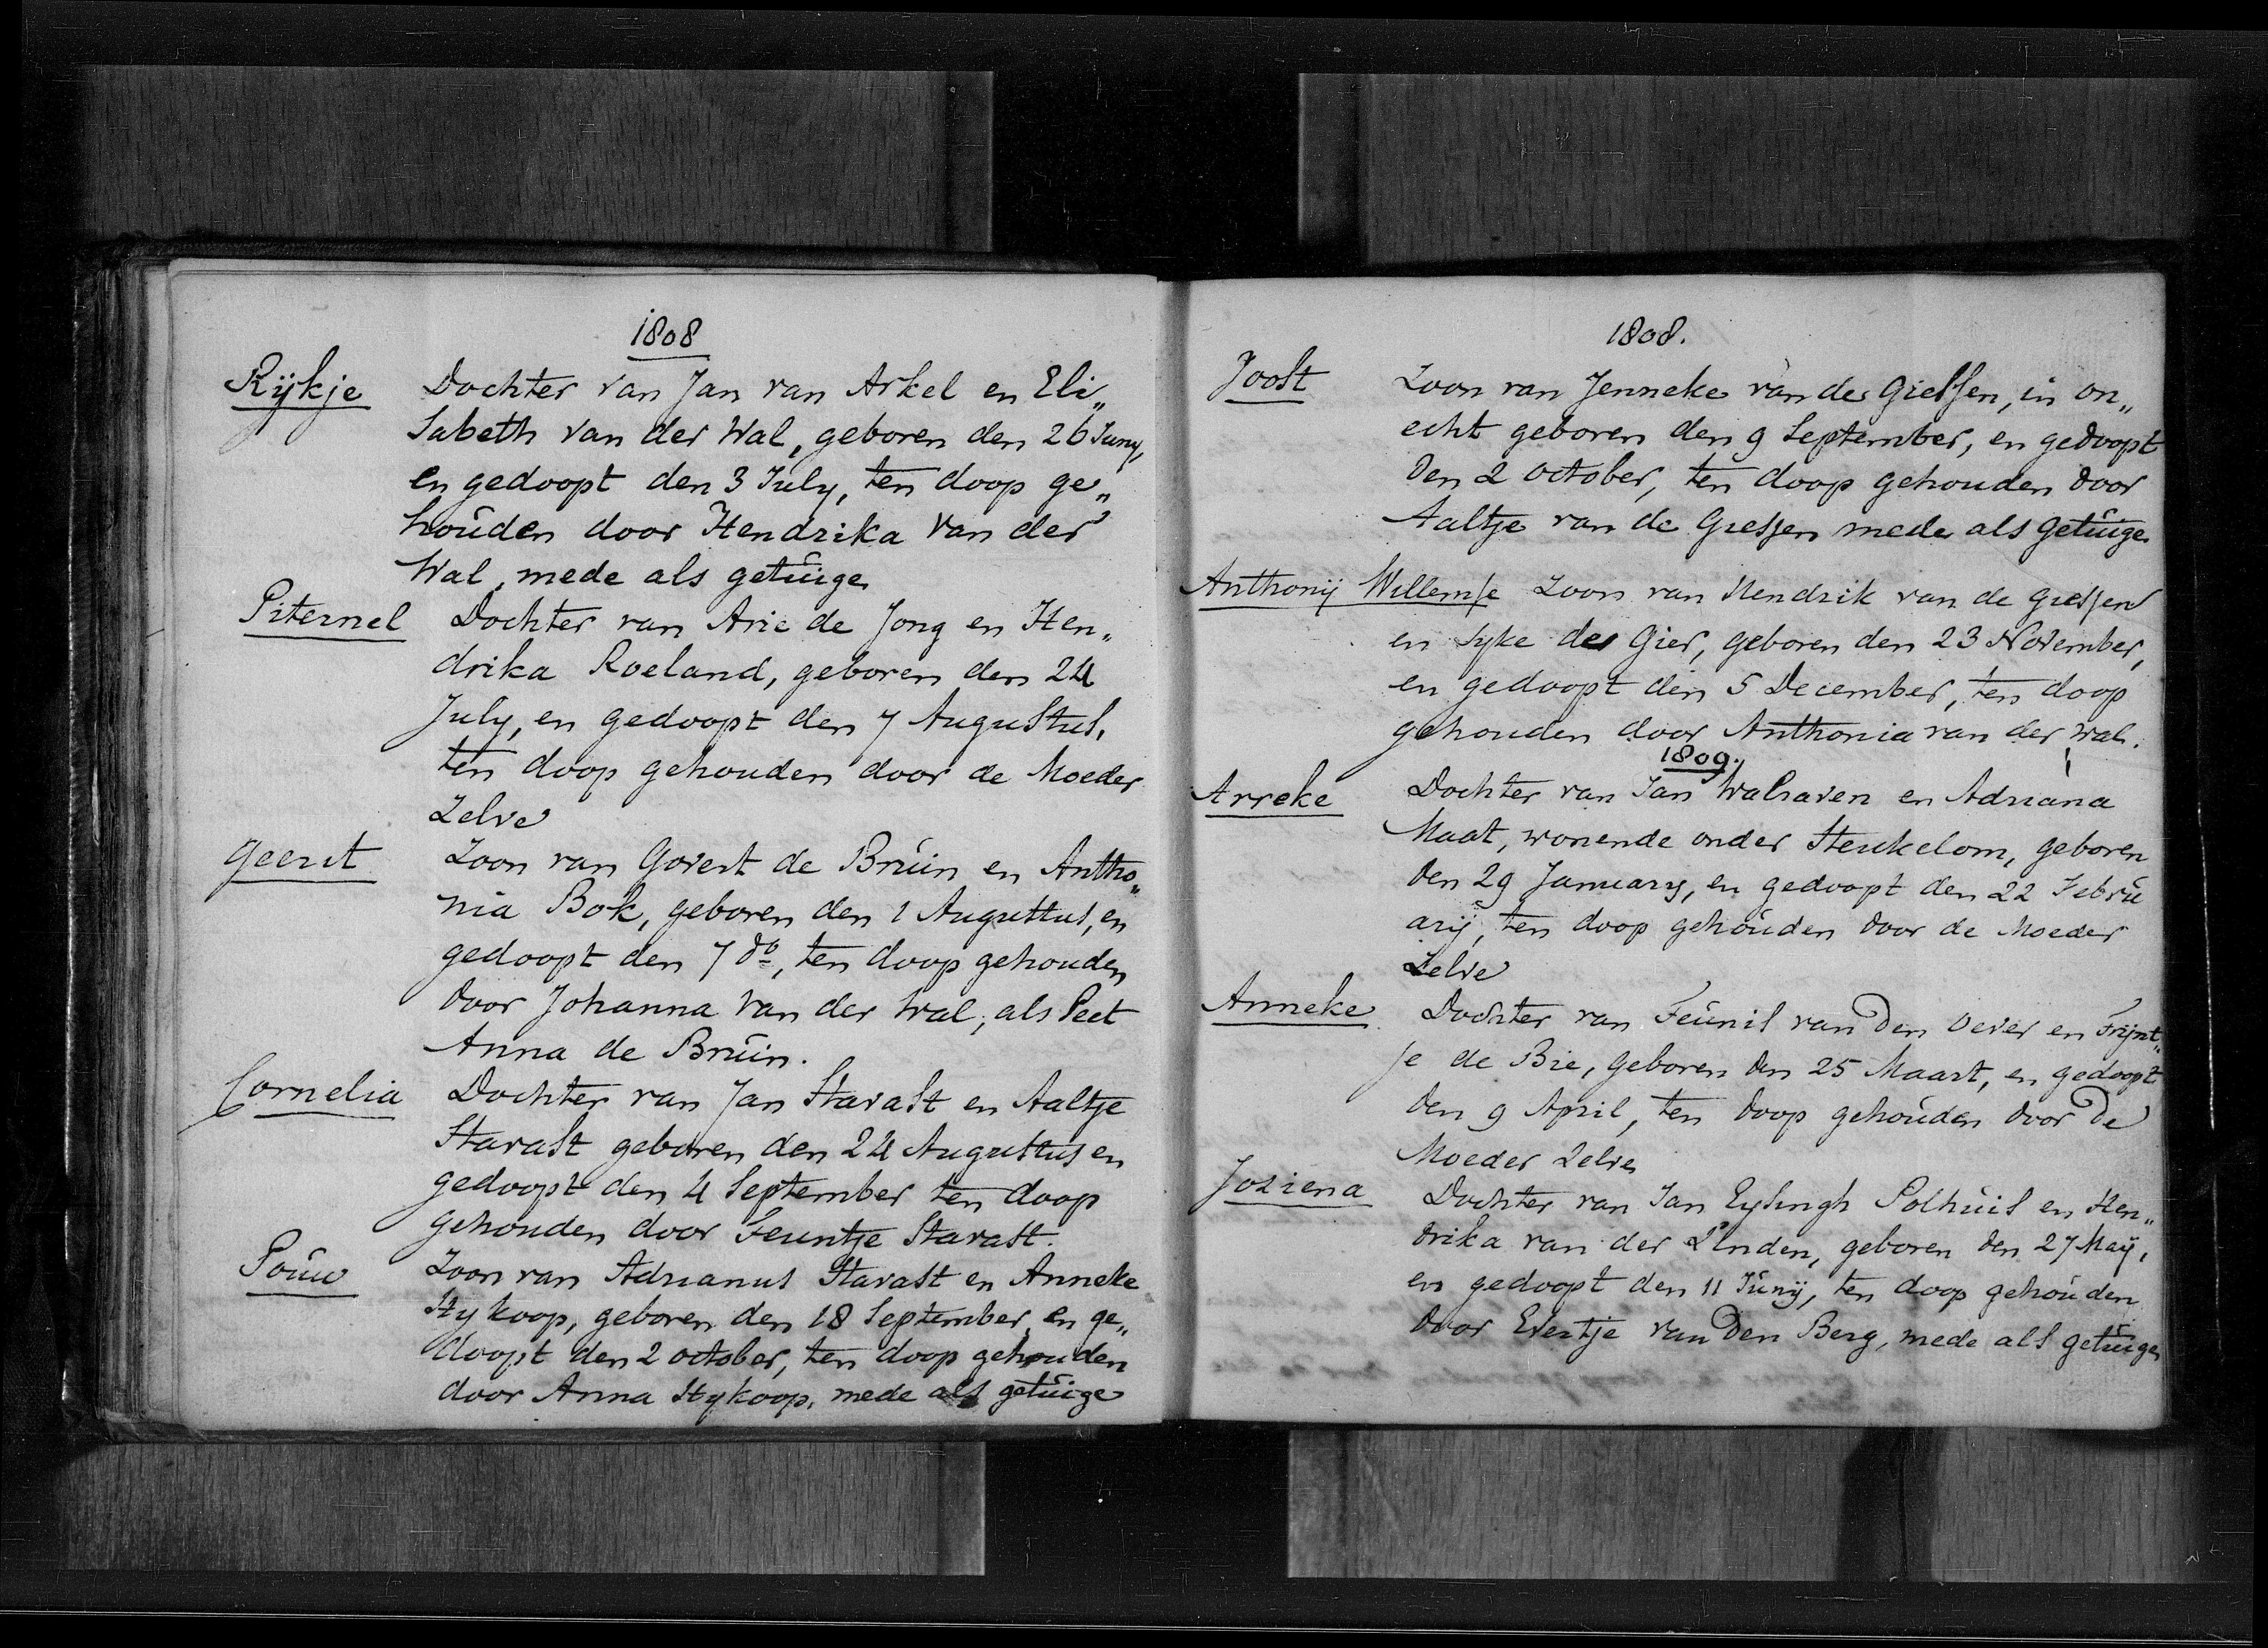 1808
Rijkje Dochter van Jan van Arkel en Eli„
Sabeth van der Wal, geboren den 26 Juny,
en gedoopt den 3 July, ten doop ge„
houden door Hendrika van der
Wal, mede als getuige
Piternel Dochter van Arie de Jong en Hen„
drika Roeland, geboren den 24
July, en gedoopt den 7 Augustus,
ten doop gehouden door de Moeder
Zelve
Geerit Zoon van Govert de Bruin en Antho„
nia Bok, geboren den 1 Augustus, en
gedoopt den 7 do, ten doop gehouden
door Johanna van der Wal, als Peet
Anna de Bruin.
Cornelia Dochter van Jan Stavast en Aaltje
Stavast geboren den 24 Augustus en
gedoopt den 4 September ten doop
gehouden door Teuntje Stavast.
Pouw Zoon van Adrianus Stavast en Anneke
Hykoop, geboren den 18 September, en ge„
doopt den 2 october, ten doop gehouden
door Anna Hykoop, mede als getuige
1808.
Joost Zoon van Jenneke van de Giessen, in on„
echt geboren den 9 September, en gedoopt
den 2 october, ten doop gehouden door
Aaltje van de Giessen mede als getuige
Anthonij Willemse Zoon van Hendrik van de Giessen
en Syke de Gier, geboren den 23 November,
en gedoopt den 5 December, ten doop
gehouden door Anthonia van der Wal.
1809.
Arreke Dochter van Jan Walraven en Adriana
Maat, wonende onder Heukelom, geboren
den 29 January, en gedoopt den 22 Febru
arij, ten doop gehouden door de Moeder
Zelve
Anneke Dochter van Teunis van den Oever en Trijnt„
je de Bie, geboren den 25 Maart, en gedoopt
den 9 April, ten doop gehouden door de
Moeder Zelve
Joziena Dochter van Jan Eysingh Polhuis en Hen„
drika van der Linden, geboren den 27 Maij,
en gedoopt den 11 Junij, ten doop gehouden
door Evertje van den Berg, mede als getuige